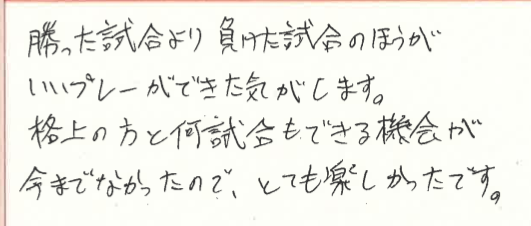 勝った試合より負けた試合のほうが
いいプレーができた気がします。
格上の方と何試合もできる機会が
今までなかったので、とても楽しかったです。